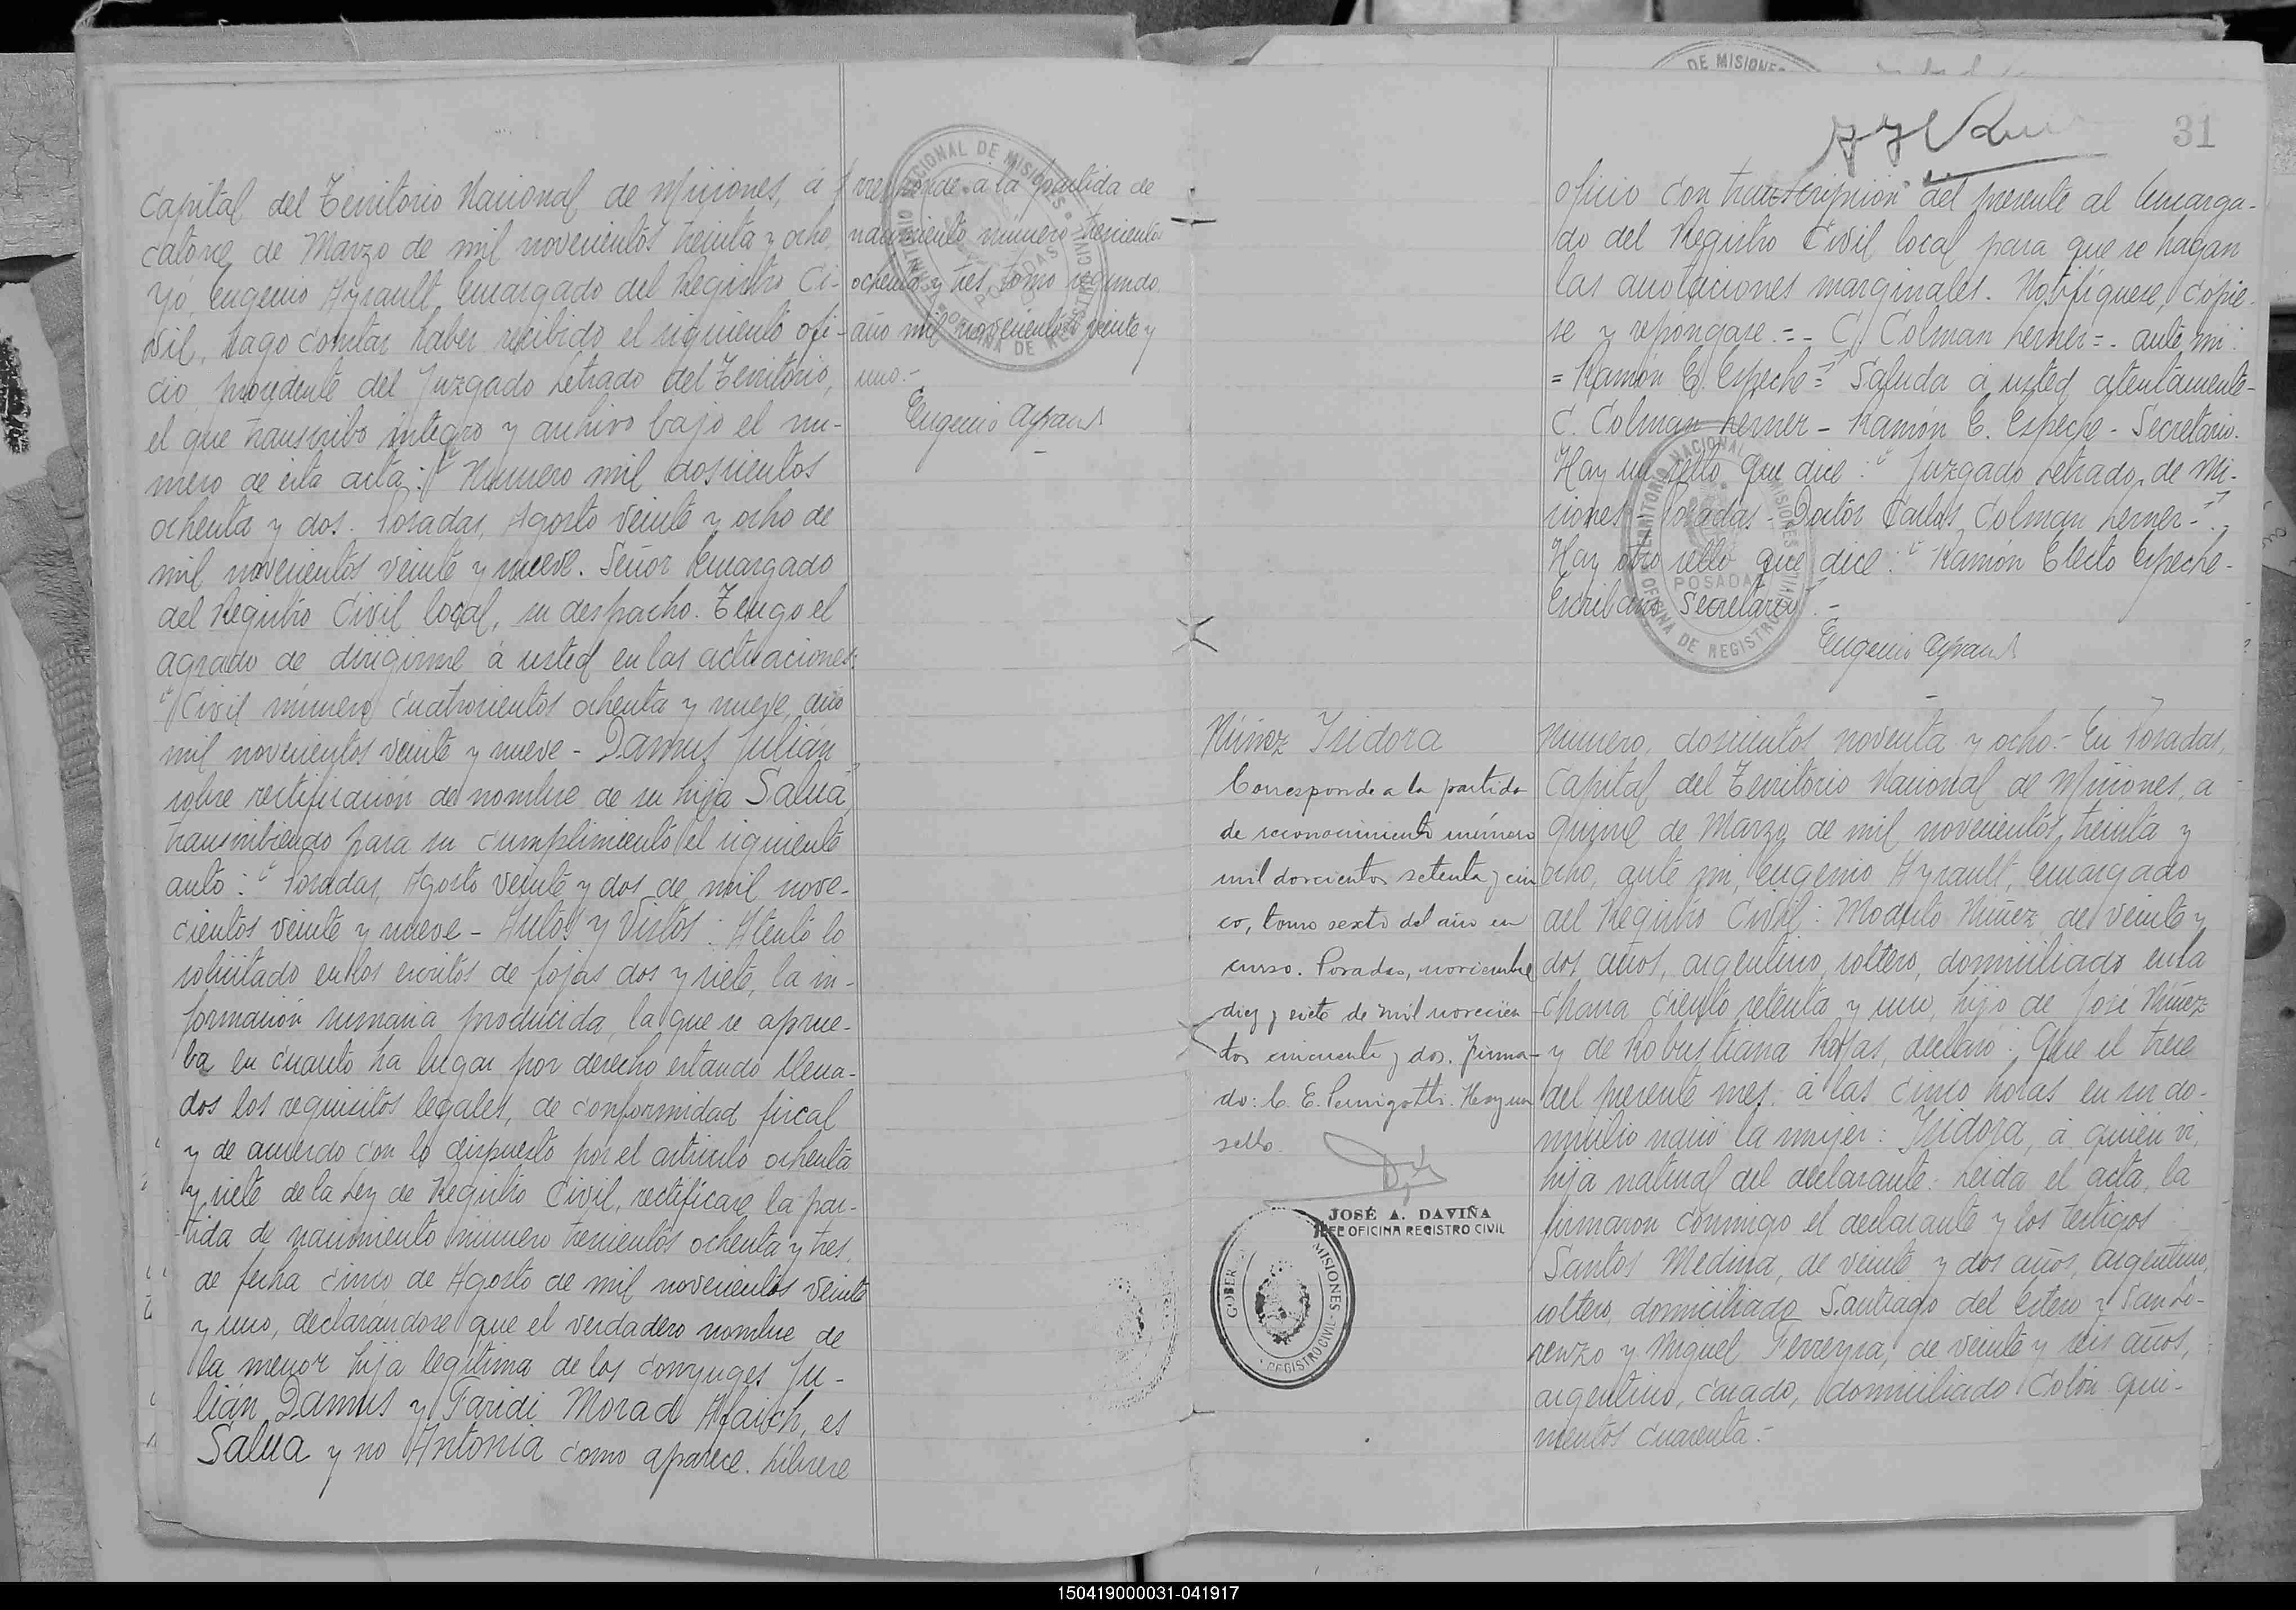 Capital del Territorio Nacional de Misiones, á
catorce de Marzo de mil novecientos treinta y ocho
Yó, Eugenio Ayrault, Encargado del Registro Ci-
vil, hago constar haber recibido el siguiente ofi-
cio procedente del Juzgado Letrado del Territorio,
el que transcribo integro y archivo bajo el nu-
mero de esta acta: "Numero mil doscientos
ochenta y dos. Posadas, Agosto veinte y ocho de
mil novecientos veinte y nueve. Señor Encargado
del Registro Civil local, su despacho. Tengo el
agrado de dirigirme á usted en las actuaciones:
"Civil número cuatrocientos ochenta y nueve, año
mil novecientos veinte y nueve - Damus Julián
sobre rectificación de nombre de su hija Salua"
transcribiendo para su cumplimiento el siguiente
auto: "Posadas, Agosto veinte y dos de mil nove-
cientos veinte y nueve - Autos y Vistos: Atento lo
solicitado en los escritos de fojas dos y siete, la in-
formación sumaria producida, la que se aprue-
ba en cuanto ha lugar por derecho estando llena-
dos los requisitos legales, de conformidad fiscal
y de acuerdo con lo dispuesto por el articulo ochenta
y siete de la Ley de Registro Civil, rectificase la par-
tida de nacimiento número trescientos ochenta y tres,
de fecha cinco de Agosto de mil novecientos veinte
y uno, declarándose que el verdadero nombre de
la menor hija legítima de los conyuges Ju-
lián Damus y Faridi Morad Afaich, es
Salua y no Antonia como aparece. Librese
rresponde a la partida de
nacimiento número trescientos
ochenta y tres tomo segundo
año mil novecientos veinte y
uno.-
Eugenio Ayrault
31
oficio con transcripción del presente al Encarga-
do del Registro Civil local para que se hagan
las anotaciones marginales. Notifíquese, cópie-
se y repóngase.=- C. Colman Lerner=- ante mi:
=Ramón E. Espeche=" Saluda á usted atentamente-
C. Colman Lerner - Ramón E. Espeche - Secretario.
Hay un sello que dice: "Juzgado Letrado de Mi-
siones - Posadas - Doctor Carlos Colman Lerner-".
Hay otro sello que dice: "Ramón Electo Espeche-
Escribano Secretario".-
Eugenio Ayrault
Núñez Isidora
Corresponde a la partida
de reconocimiento número
mil doscientos setenta y cin
co, tomo sexto del año en
curso. Posadas, noviembre
diez y siete de mil novecien
tos cincuenta y dos. Firma-
do: C. E. Pernigotti. Hay un
sello.
JOSÉ A. DAVIÑA
JEFE OFICINA REGISTRO CIVIL
GOBER MISIONES
REGISTRO CIVIL
Numero, doscientos noventa y ocho.- En Posadas,
Capital del Territorio Nacional de Misiones, a
quince de Marzo de mil novecientos treinta y
ocho, ante mi, Eugenio Ayrault, Encargado
del Registro Civil: Modesto Núñez, de veinte y
dos años, argentino, soltero, domiciliado en la
chacra ciento setenta y uno, hijo de José Núñez
y de Robustiana Rojas, declaró: Que el trece
del presente mes, á las cinco horas en su do-
micilio nació la mujer: Isidora, á quién vi,
hija natural del declarante. Leida el acta, la
firmaron conmigo el declarante y los testigos
Santos Medina, de veinte y dos años, argentino,
soltero, domiciliado Santiago del Estero y San Lo-
renzo y Miguel Ferreyra, de veinte y seis años,
argentino, casado, domiciliado Colón qui-
nientos cuarenta.-
150419000031-041917